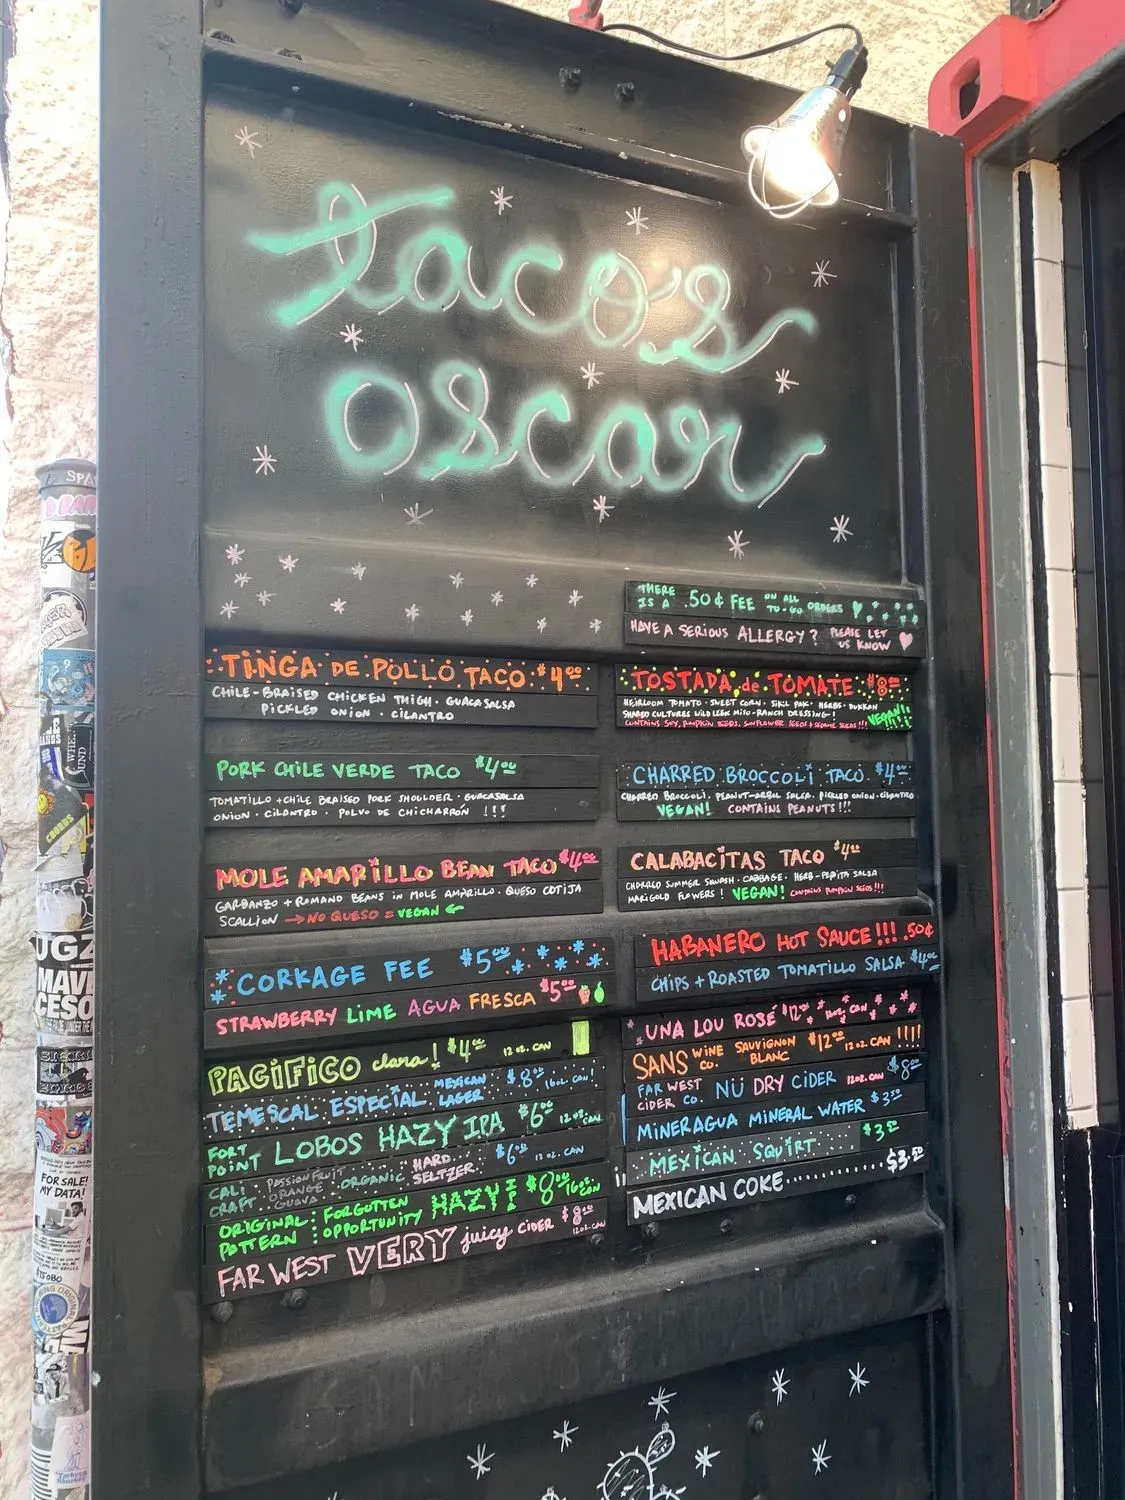 taco's
oscar
THERE IS A .50¢ FEE ON ALL TO-GO ORDERS
HAVE A SERIOUS ALLERGY? PLEASE LET US KNOW
TINGA DE POLLO TACO $4.00
CHILE-BRAISED CHICKEN THIGH · GUACASALSA
PICKLED ONION · CILANTRO
PORK CHILE VERDE TACO $4.00
TOMATILLO + CHILE BRAISED PORK SHOULDER · GUACASALSA
ONION · CILANTRO · POLVO DE CHICHARRÓN !!!
MOLE AMARILLO BEAN TACO $4.00
GARBANZO + ROMANO BEANS IN MOLE AMARILLO · QUESO COTIJA
SCALLION → NO QUESO = VEGAN ←
CORKAGE FEE $5.00
STRAWBERRY LIME AGUA FRESCA $5.00
PACIFICO clara! $4.00 12 OZ. CAN
TEMESCAL ESPECIAL MEXICAN LAGER $8.00 16 OZ. CAN!
FORT POINT LOBOS HAZY IPA $6.00 12 OZ. CAN
CALI CRAFT PASSION FRUIT ORANGE GUAVA ORGANIC HARD SELTZER $6.00 12 OZ. CAN
ORIGINAL PATTERN FORGOTTEN OPPORTUNITY HAZY! $8.00 16 OZ. CAN
FAR WEST VERY juicy CIDER $8.00 12 OZ. CAN
TOSTADA de TOMATE $8.00
HEIRLOOM TOMATO · SWEET CORN · SIKIL PAK · HERBS · DUKKAH
SHARED CULTURES WILD LEEK MISO-RANCH DRESSING! VEGAN!
CONTAINS SOY, PUMPKIN SEEDS, SUNFLOWER SEEDS + SESAME SEEDS!!!
CHARRED BROCCOLI TACO $4.00
CHARRED BROCCOLI · PEANUT-ARBOL SALSA · PICKLED ONION · CILANTRO
VEGAN! CONTAINS PEANUTS!!!
CALABACITAS TACO $4.00
CHARRED SUMMER SQUASH · CABBAGE · HERB-PEPITA SALSA
MARIGOLD FLOWERS! VEGAN! CONTAINS PUMPKIN SEEDS!!!
HABANERO HOT SAUCE!!! .50¢
CHIPS + ROASTED TOMATILLO SALSA $4.00
UNA LOU ROSÉ $12.00 CAN
SANS WINE CO. SAUVIGNON BLANC $12.00 12 OZ. CAN !!!!
FAR WEST CIDER CO. NÜ DRY CIDER 12 OZ. CAN $8.00
MINERAGUA MINERAL WATER $3.50
MEXICAN SQUIRT $3.50
MEXICAN COKE........$3.50
FOR SALE!
MY DATA!